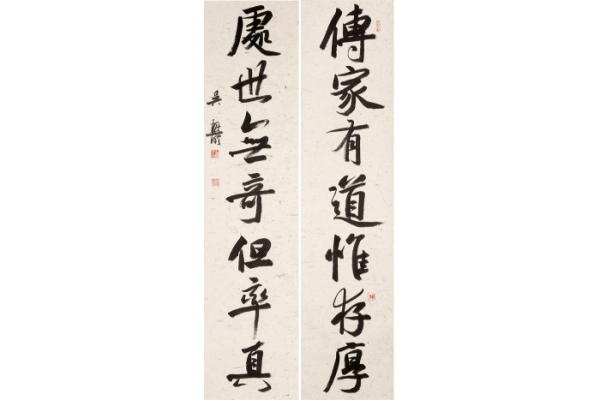 傳家有道惟存厚
處世無奇但率真
吳